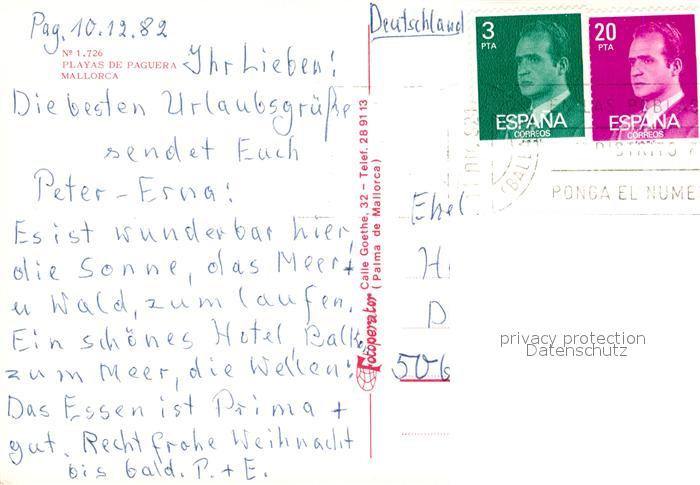 Pag. 10.12.82
Nº 1.726
PLAYAS DE PAGUERA
MALLORCA
Ihr Lieben!
Die besten Urlaubsgrüße
sendet Euch
Peter-Erna!
Es ist wunderbar hier,
die Sonne, das Meer +
u Wald, zum laufen.
Ein schönes Hotel, Balk.
zum Meer, die Wellen!
Das Essen ist Prima +
gut. Recht frohe Weihnacht
bis bald. P. + E.
Fotoperator Calle Goethe, 32 - Telef. 28 91 13
(Palma de Mallorca)
Deutschland
3
PTA
ESPAÑA
CORREOS
20
PTA
ESPAÑA
CORREOS
DISTRITO
PONGA EL NUME
H
D
506
privacy protection
Datenschutz